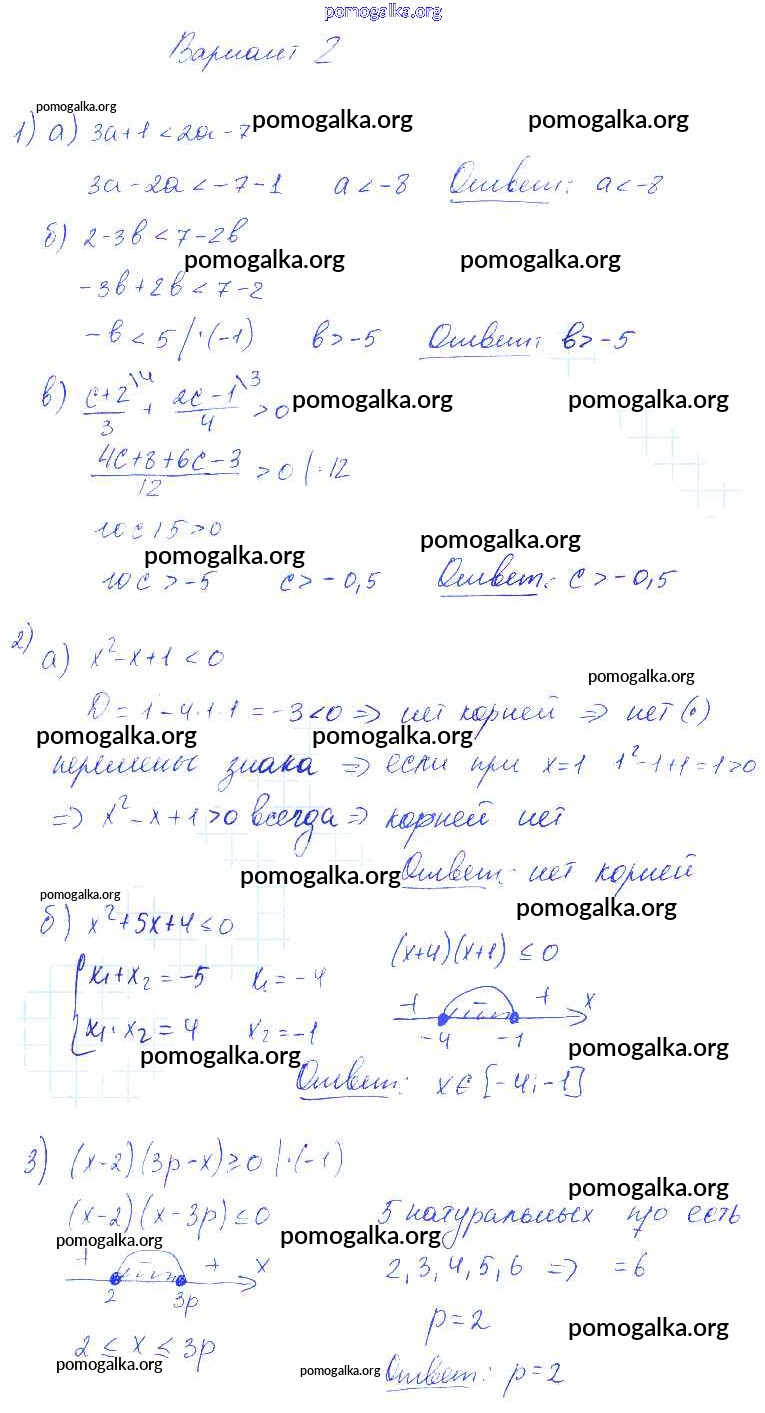 pomogalka.org
Вариант 2
pomogalka.org
1) а) 3a+1<2a-7 pomogalka.org pomogalka.org
3a-2a<-7-1 a<-8 Ответ: a<-8
б) 2-3b<7-2b
pomogalka.org pomogalka.org
-3b+2b<7-2
-b<5 |·(-1) b>-5 Ответ: b>-5
в) (c+2)/3 \4 + (2c-1)/4 \3 >0 pomogalka.org pomogalka.org
(4c+8+6c-3)/12 >0 |·12
10c+5>0
pomogalka.org pomogalka.org
10c>-5 c>-0,5 Ответ: c>-0,5
2) а) x²-x+1<0
pomogalka.org
D=1-4·1·1=-3<0 => нет корней => нет (·)
pomogalka.org pomogalka.org
перемены знака => если при x=1 1²-1+1=1>0
=> x²-x+1>0 всегда => корней нет
pomogalka.org Ответ: нет корней
pomogalka.org pomogalka.org
б) x²+5x+4≤0
(x+4)(x+1)≤0
{x₁+x₂=-5 x₁=-4
x₁·x₂=4 x₂=-1
+ - + x
-4 -1
pomogalka.org pomogalka.org
Ответ: x∈[-4;-1]
3) (x-2)(3p-x)≥0 |·(-1)
pomogalka.org
(x-2)(x-3p)≤0 5 натуральных то есть
pomogalka.org pomogalka.org
+ - + x 2,3,4,5,6 => =6
2 3p
p=2 pomogalka.org
2≤x≤3p
pomogalka.org pomogalka.org Ответ: p=2